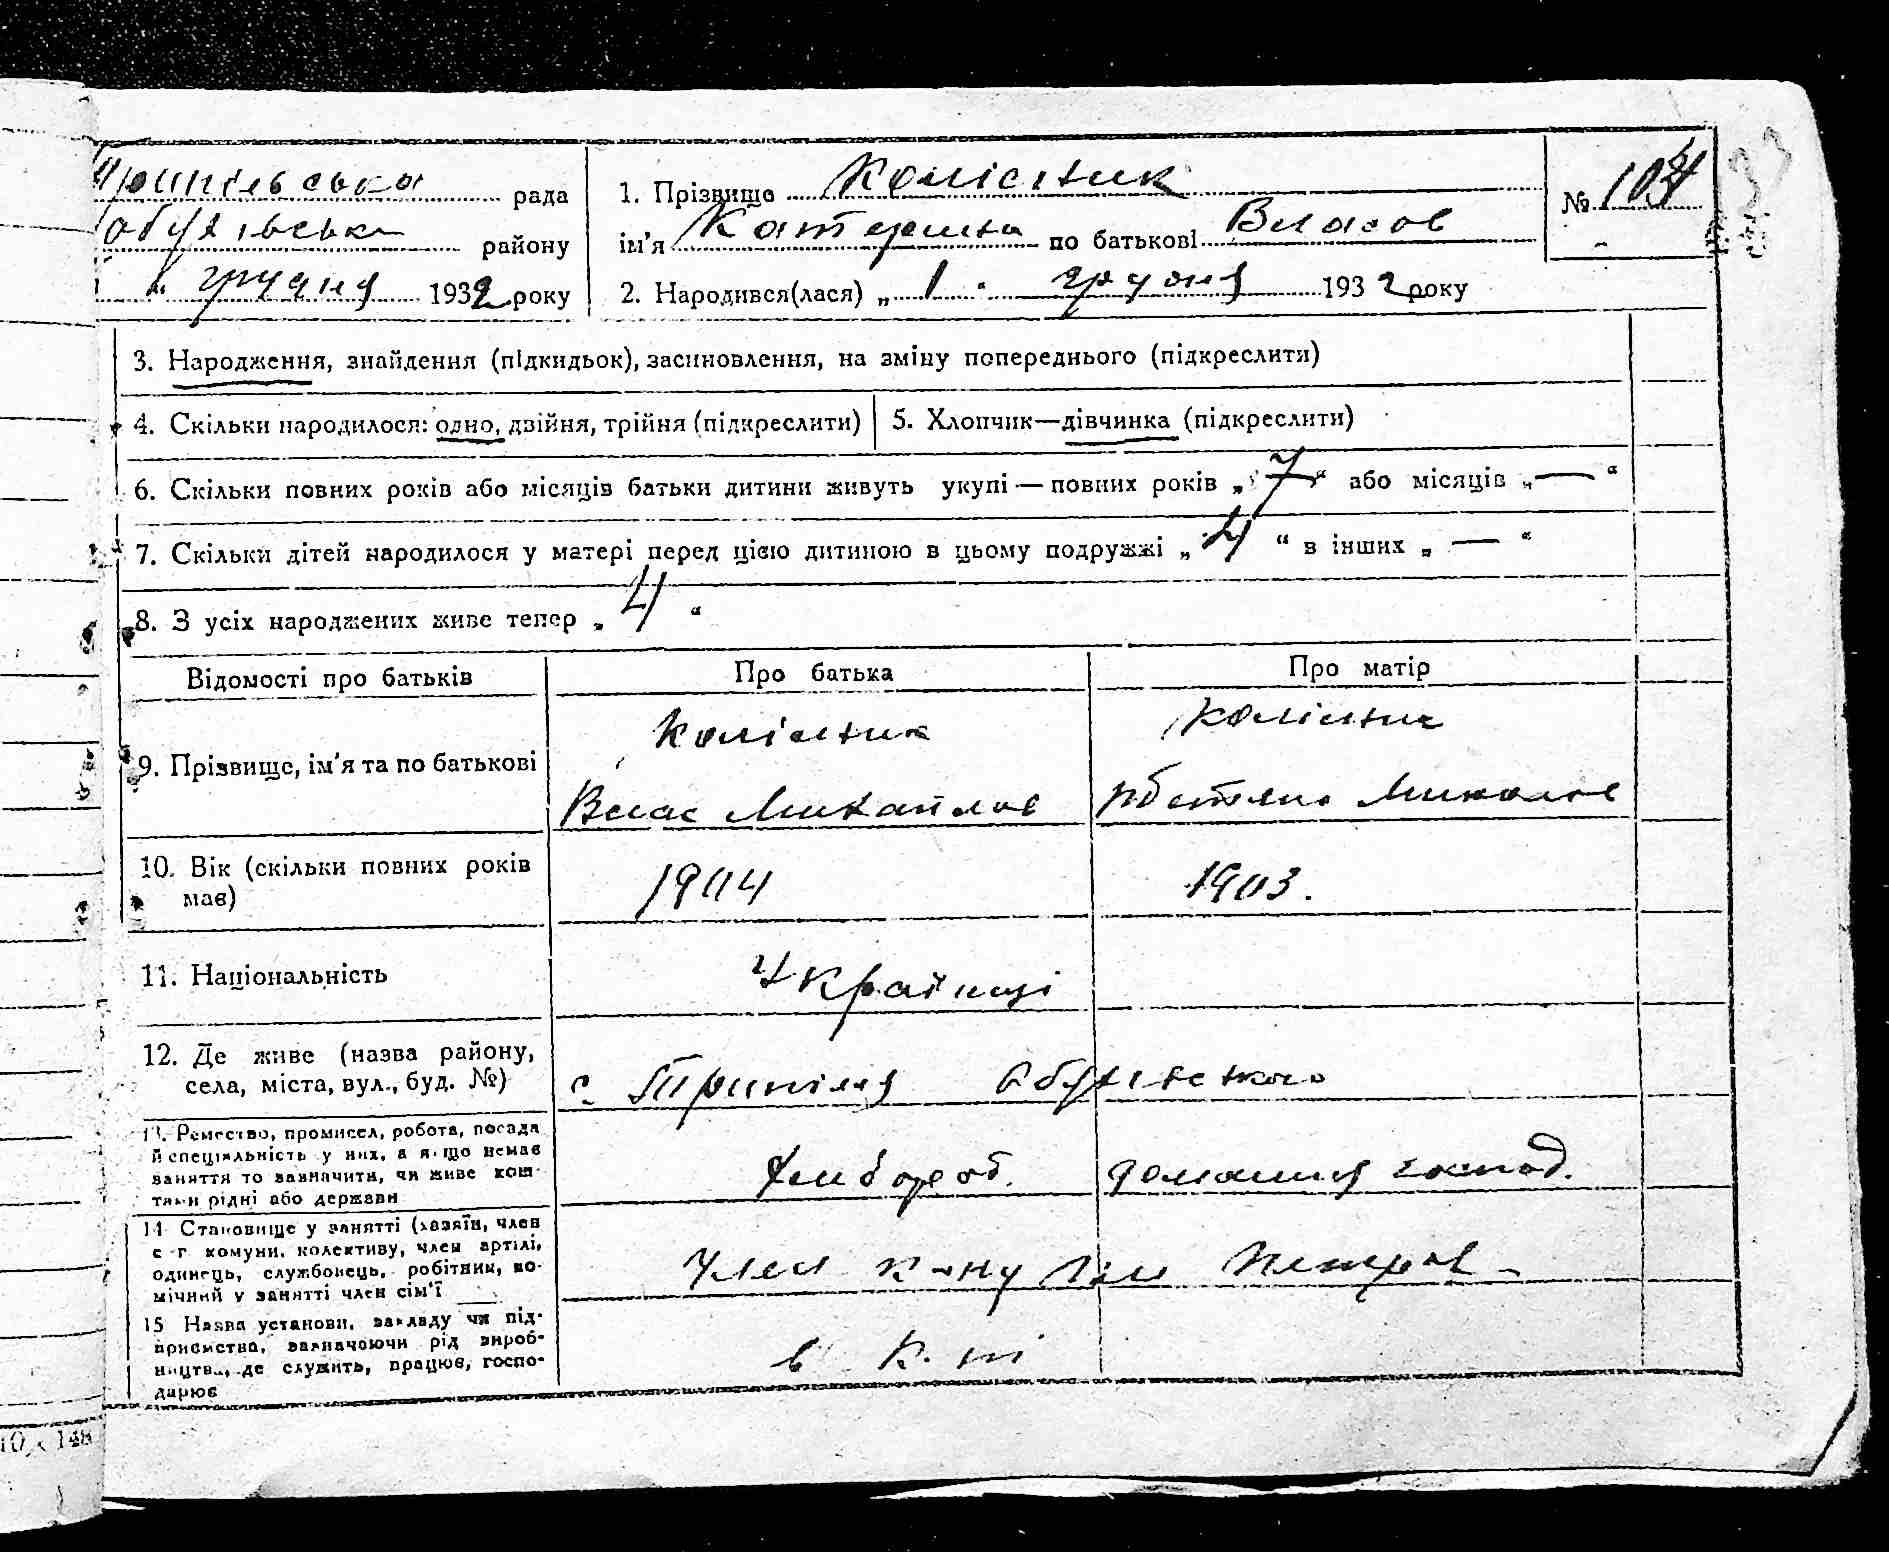 рада
району
грудня 1932 року
1. Прізвище Колісник
ім'я Катерина по батькові Власов
2. Народився(лася) „ 1 " грудня 1932 року
№ 104
3. Народження, знайдення (підкидьок), засиновлення, на зміну попереднього (підкреслити)
4. Скільки народилося: одно, двійня, трійня (підкреслити)
5. Хлопчик—дівчинка (підкреслити)
6. Скільки повних років або місяців батьки дитини живуть укупі — повних років „ 7 “ або місяців „ — “
7. Скільки дітей народилося у матері перед цією дитиною в цьому подружжі „ 4 “ в інших „ — “
8. З усіх народжених живе тепер „ 4 “
Відомості про батьків
Про батька
Про матір
9. Прізвище, ім'я та по батькові
Колісник
Влас Михайлов
Колісник
Миколов
10. Вік (скільки повних років
має)
1904
1903.
11. Національність
Українці
12. Де живе (назва району,
села, міста, вул., буд. №)
с. Трипілля Обухівского
13. Ремество, промисел, робота, посада
й спеціяльність у них, а якщо немає
заняття то зазначити, чи живе кош-
тами рідні або держави
Хлібороб.
домашня господ.
14 Становище у занятті (хазяїн, член
с.-г. комуни, колективу, член артілі,
одинець, службовець, робітник, по-
мічний у занятті член сім'ї
Член
15 Назва установи, закладу чи під-
приємства, зазначаючи рід вироб-
ництва, де служить, працює, госпо-
дарює
в
10 х 148